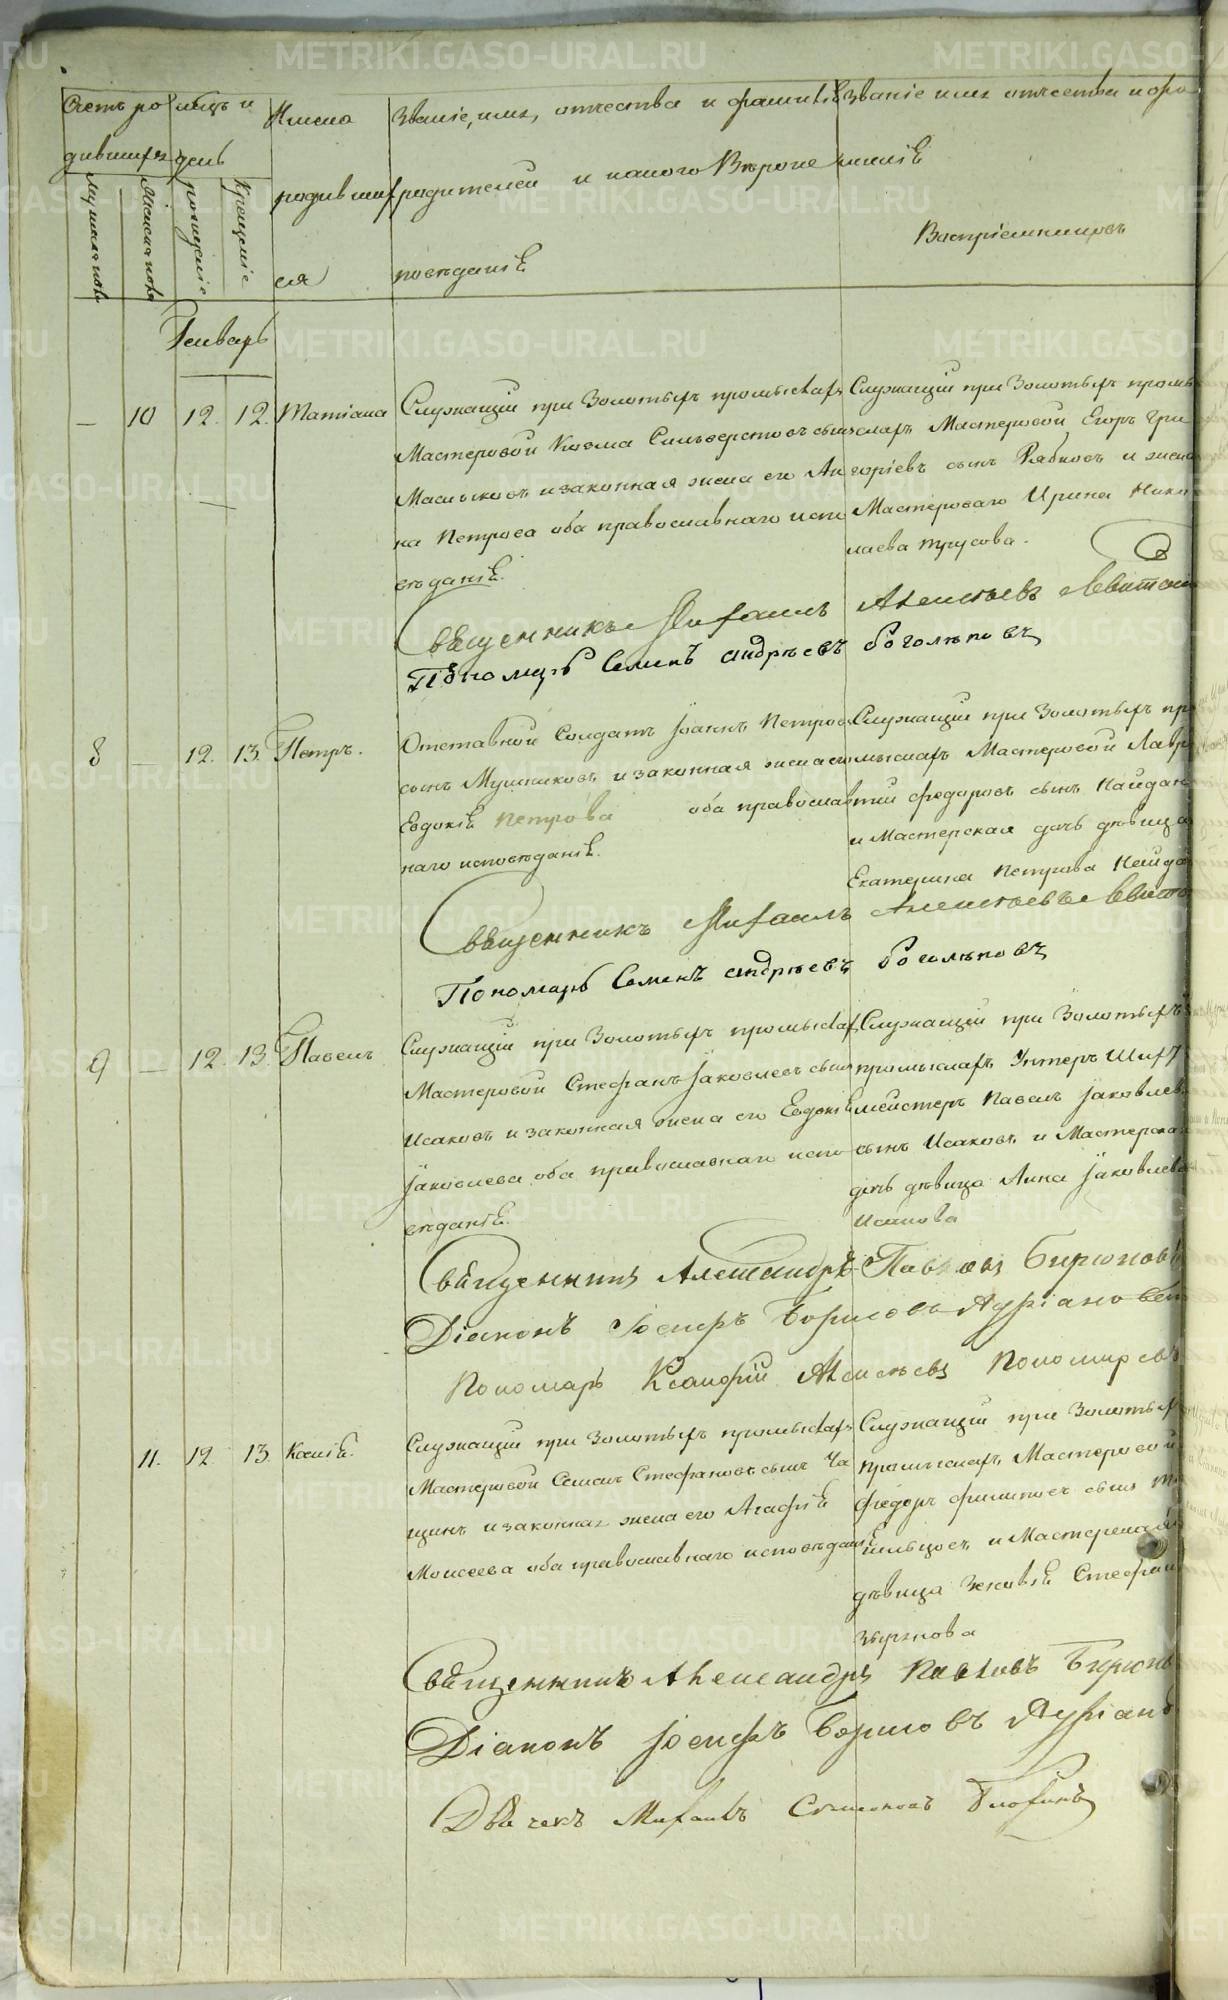 Счетъ ро
дившихъ
Мужеска пола
Женска пола
мѣцъ и
день
рожденіе
крещеніе
Имена
родивших
ся
Званіе, имя, отчества и фамиліѣ
родителей и какого Вѣроис
повѣданіѣ
Званіе имя отчества и фа
миліѣ
Воспріемниковъ
Генварь
— 10 12. 12. Татіана
Служащій при Золотыхъ промыслахъ
Мастеровой Козма Сильверстовъ сынъ
и законная жена его Ан
на Петрова оба православнаго испо
вѣданіѣ.
Служащій при Золотыхъ промы
слахъ Мастеровой Егоръ Гри
горіевъ сынъ Рябковъ и жена
Мастероваго Ирина Нико
лаева
Священникъ Михаилъ Алексѣевъ Левитскі
Пономарь Семенъ Андрѣевъ Боголѣповъ
8 — 12. 13. Петръ.
Отставной Солдатъ Іоаннъ Петров
сынъ Мушниковъ и законная жена его
Евдокіѣ Петрова оба православ
наго исповѣданіѣ.
Служащій при Золотыхъ пр
мыслахъ Мастеровой Лавр
тій Федоровъ сынъ Кайдан
и Мастерская дочь дѣвица
Екатерина Петрова
Священникъ Михаилъ Алексѣевъ Левитс
Пономарь Семенъ Андрѣевъ Боголѣповъ
9 — 12. 13. Павелъ
Служащій при Золотыхъ промыслах
Мастеровой Стефанъ Іаковлевъ сынъ
Исаковъ и законная жена его Евдокіѣ
Іаковлева оба православнаго испо
вѣданіѣ.
Служащій при Золотыхъ
промыслахъ Унтеръ Шихт
мейстеръ Павелъ Іаковлев
сынъ Исаковъ и Мастерска
дочь дѣвица Анна Іаковлева
Исакова
Священникъ Александръ Павловъ Бирюковъ
Діаконъ Іосифъ Борисовъ Адріановск
Пономарь Ксенофій Алексѣевъ Пономаревъ
11. 12. 13. Ксеніѣ.
Служащій при Золотыхъ промыслахъ
Мастеровой Семенъ Стефановъ сынъ Ча
щинъ и законная жена его Агафіѣ
Моисеева оба православнаго исповѣданіѣ
Служащій при Золотых
промыслахъ Мастеровой
Федоръ Филиповъ сынъ
и Мастерская
дѣвица Стефан
Зырянова
Священникъ Александръ Павловъ Бирюк
Діаконъ Іосифъ Борисовъ Адріано
Дьячекъ Михаилъ Симеоновъ
METRIKI.GASO-URAL.RU